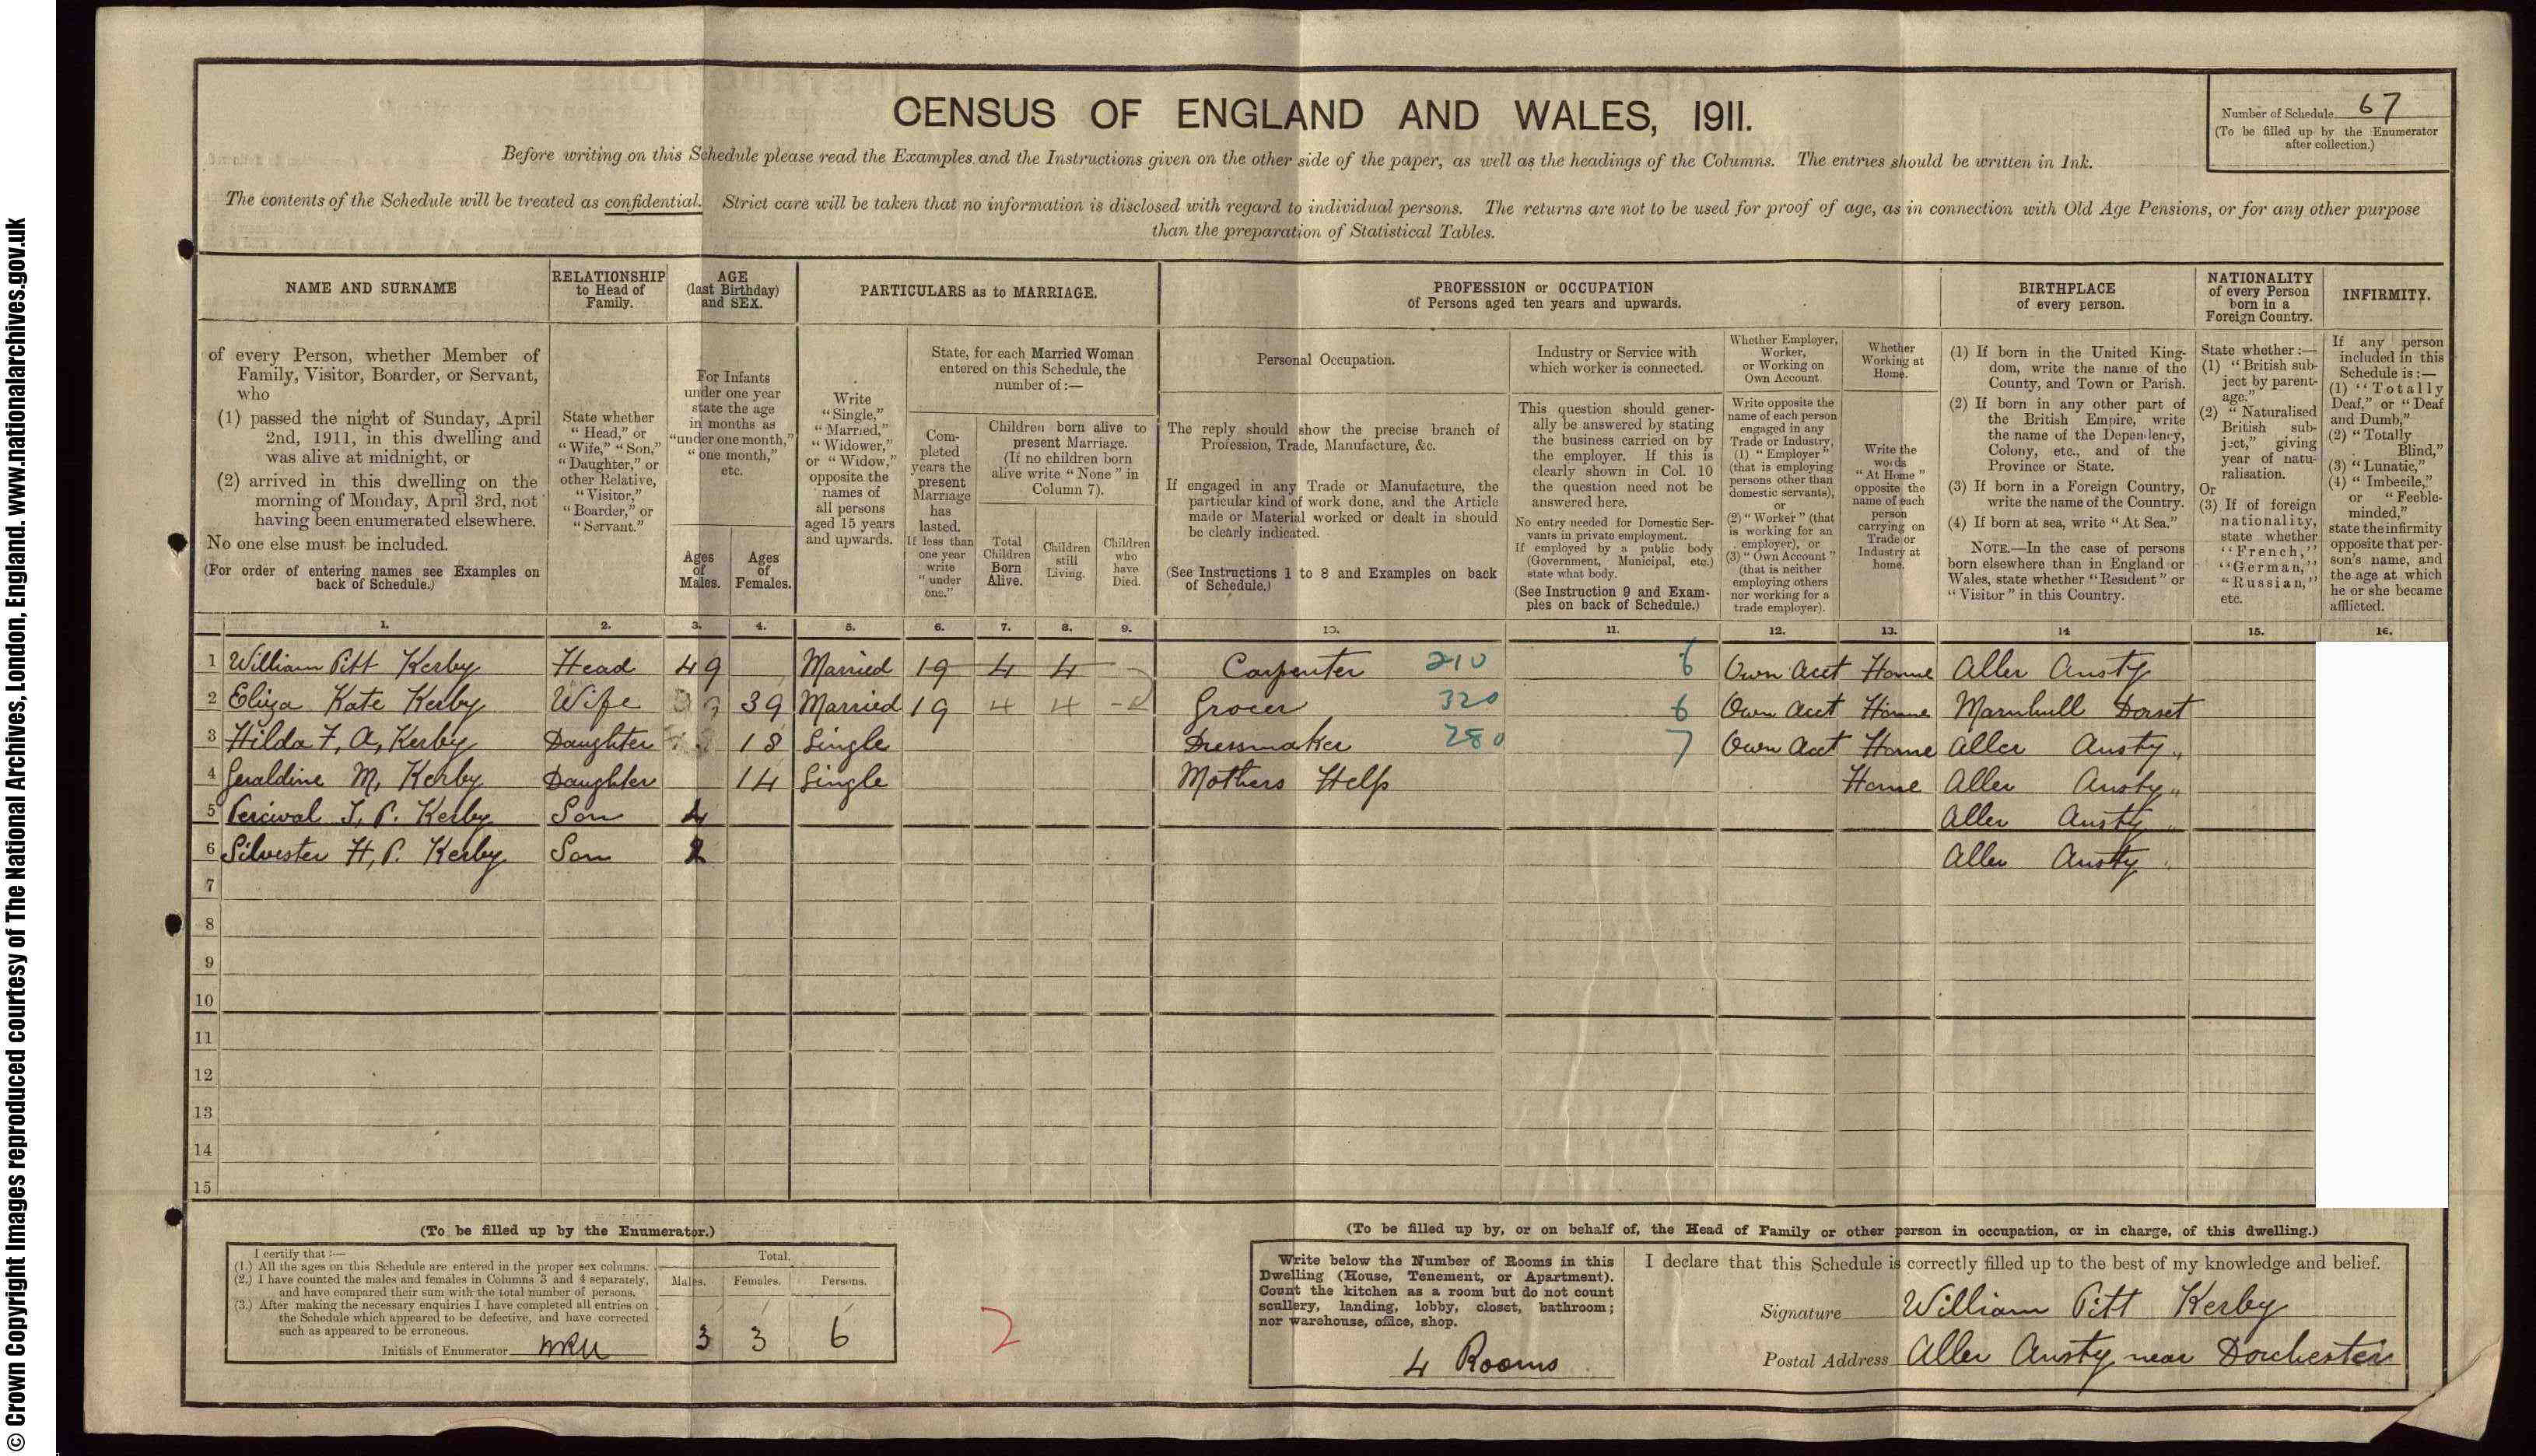 © Crown Copyright Images reproduced courtesy of The National Archives, London, England. www.nationalarchives.gov.uk
CENSUS OF ENGLAND AND WALES, 1911.
Number of Schedule 67
(To be filled up by the Enumerator
after collection.)
Before writing on this Schedule please read the Examples and the Instructions given on the other side of the paper, as well as the headings of the Columns. The entries should be written in Ink.
The contents of the Schedule will be treated as confidential. Strict care will be taken that no information is disclosed with regard to individual persons. The returns are not to be used for proof of age, as in connection with Old Age Pensions, or for any other purpose
than the preparation of Statistical Tables.
NAME AND SURNAME
of every Person, whether Member of
Family, Visitor, Boarder, or Servant,
who
(1) passed the night of Sunday, April
2nd, 1911, in this dwelling and
was alive at midnight, or
(2) arrived in this dwelling on the
morning of Monday, April 3rd, not
having been enumerated elsewhere.
No one else must be included.
(For order of entering names see Examples on
back of Schedule.)
RELATIONSHIP
to Head of
Family.
State whether
"Head," or
"Wife," "Son,"
"Daughter," or
other Relative,
"Visitor,"
"Boarder," or
"Servant."
AGE
(last Birthday)
and SEX.
For Infants
under one year
state the age
in months as
"under one month,"
"one month,"
etc.
Ages
of
Males.
Ages
of
Females.
PARTICULARS as to MARRIAGE.
Write
"Single,"
"Married,"
"Widower,"
or "Widow,"
opposite the
names of
all persons
aged 15 years
and upwards.
State, for each Married Woman
entered on this Schedule, the
number of:—
Com-
pleted
years the
present
Marriage
has
lasted.
If less than
one year
write
"under
one."
Children born alive to
present Marriage.
(If no children born
alive write "None" in
Column 7).
Total
Children
Born
Alive.
Children
still
Living.
Children
who
have
Died.
PROFESSION or OCCUPATION
of Persons aged ten years and upwards.
Personal Occupation.
The reply should show the precise branch of
Profession, Trade, Manufacture, &c.
If engaged in any Trade or Manufacture, the
particular kind of work done, and the Article
made or Material worked or dealt in should
be clearly indicated.
(See Instructions 1 to 8 and Examples on back
of Schedule.)
Industry or Service with
which worker is connected.
This question should gener-
ally be answered by stating
the business carried on by
the employer. If this is
clearly shown in Col. 10
the question need not be
answered here.
No entry needed for Domestic Ser-
vants in private employment.
If employed by a public body
(Government, Municipal, etc.)
state what body.
(See Instruction 9 and Exam-
ples on back of Schedule.)
Whether Employer,
Worker,
or Working on
Own Account.
Write opposite the
name of each person
engaged in any
Trade or Industry,
(1) "Employer"
(that is employing
persons other than
domestic servants),
or
(2) "Worker" (that
is working for an
employer), or
(3) "Own Account"
(that is neither
employing others
nor working for a
trade employer).
Whether
Working at
Home.
Write the
words
"At Home"
opposite the
name of each
person
carrying on
Trade or
Industry at
home.
BIRTHPLACE
of every person.
(1) If born in the United King-
dom, write the name of the
County, and Town or Parish.
(2) If born in any other part of
the British Empire, write
the name of the Dependency,
Colony, etc., and of the
Province or State.
(3) If born in a Foreign Country,
write the name of the Country.
(4) If born at sea, write "At Sea."
NOTE.—In the case of persons
born elsewhere than in England or
Wales, state whether "Resident" or
"Visitor" in this Country.
NATIONALITY
of every Person
born in a
Foreign Country.
State whether:—
(1) "British sub-
ject by parent-
age."
(2) "Naturalised
British sub-
ject," giving
year of natu-
ralisation.
Or
(3) If of foreign
nationality,
state whether
"French,"
"German,"
"Russian,"
etc.
INFIRMITY.
If any person
included in this
Schedule is:—
(1) "Totally
Deaf," or "Deaf
and Dumb,"
(2) "Totally
Blind,"
(3) "Lunatic,"
(4) "Imbecile,"
or "Feeble-
minded,"
state the infirmity
opposite that per-
son's name, and
the age at which
he or she became
afflicted.
1. 2. 3. 4. 5. 6. 7. 8. 9. 10. 11. 12. 13. 14 15. 16.
1 William Pitt Kerby Head 49 Married 19 4 4 Carpenter 210 6 Own Acct Home Aller Ansty
2 Eliza Kate Kerby Wife 39 Married 19 4 4 Grocer 320 6 Own Acct Home Marnhull Dorset
3 Hilda F, A, Kerby Daughter 18 Single Dressmaker 280 7 Own Acct Home Aller Ansty "
4 Geraldine M, Kerby Daughter 14 Single Mothers Help Home Aller Ansty "
5 Percival J, P. Kerby Son 4 Aller Ansty "
6 Silvester H, P. Kerby Son 2 Aller Ansty "
7
8
9
10
11
12
13
14
15
(To be filled up by the Enumerator.)
I certify that:—
(1.) All the ages on this Schedule are entered in the proper sex columns.
(2.) I have counted the males and females in Columns 3 and 4 separately,
and have compared their sum with the total number of persons.
(3.) After making the necessary enquiries I have completed all entries on
the Schedule which appeared to be defective, and have corrected
such as appeared to be erroneous.
Initials of Enumerator
Total.
Males. Females. Persons.
3 3 6
2
(To be filled up by, or on behalf of, the Head of Family or other person in occupation, or in charge, of this dwelling.)
Write below the Number of Rooms in this
Dwelling (House, Tenement, or Apartment).
Count the kitchen as a room but do not count
scullery, landing, lobby, closet, bathroom;
nor warehouse, office, shop.
4 Rooms
I declare that this Schedule is correctly filled up to the best of my knowledge and belief.
Signature William Pitt Kerby
Postal Address Aller Ansty near Dorchester